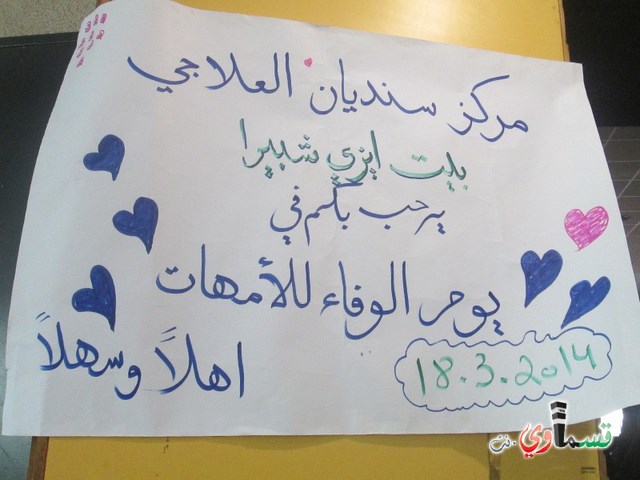 مركز سنديان العلاجي
بيت ايزي شبيرا
يرحب بكم في
يوم الوفاء للأمهات
اهلاً وسهلاً
18.3.2014
قسماوي نت